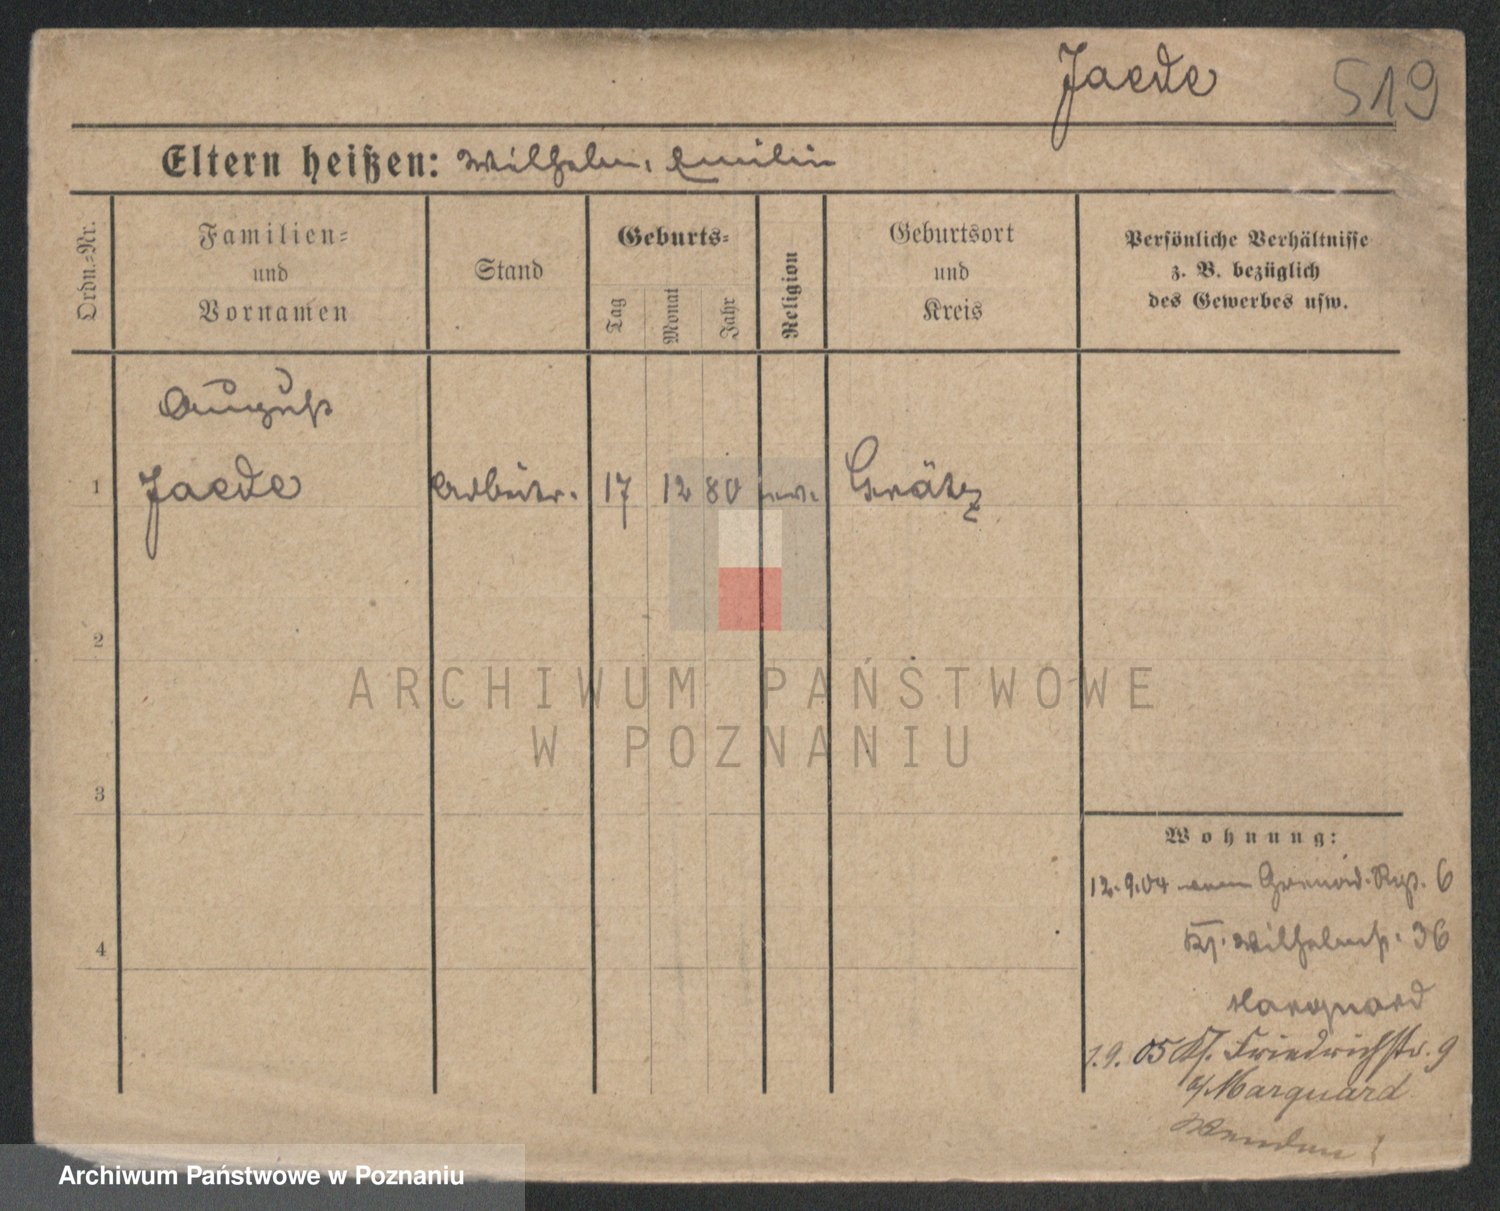 Jaede 519
Eltern heißen: Wilhelm, Emilie
Ordn.-Nr.
Familien-
und
Vornamen
Stand
Geburts-
Tag
Monat
Jahr
Religion
Geburtsort
und
Kreis
Persönliche Verhältnisse
z. B. bezüglich
des Gewerbes usw.
August
1 Jaede Arbeiter. 17 12 80 ev. Grätz
2
3
4
ARCHIWUM PAŃSTWOWE
W POZNANIU
Wohnung:
12.9.04 vom Grenad. Rgt. 6
Kl. Wilhelmst. 36
Marquard
1.9.05 Kl. Friedrichstr. 9
b/Marquard
Wenden!
Archiwum Państwowe w Poznaniu